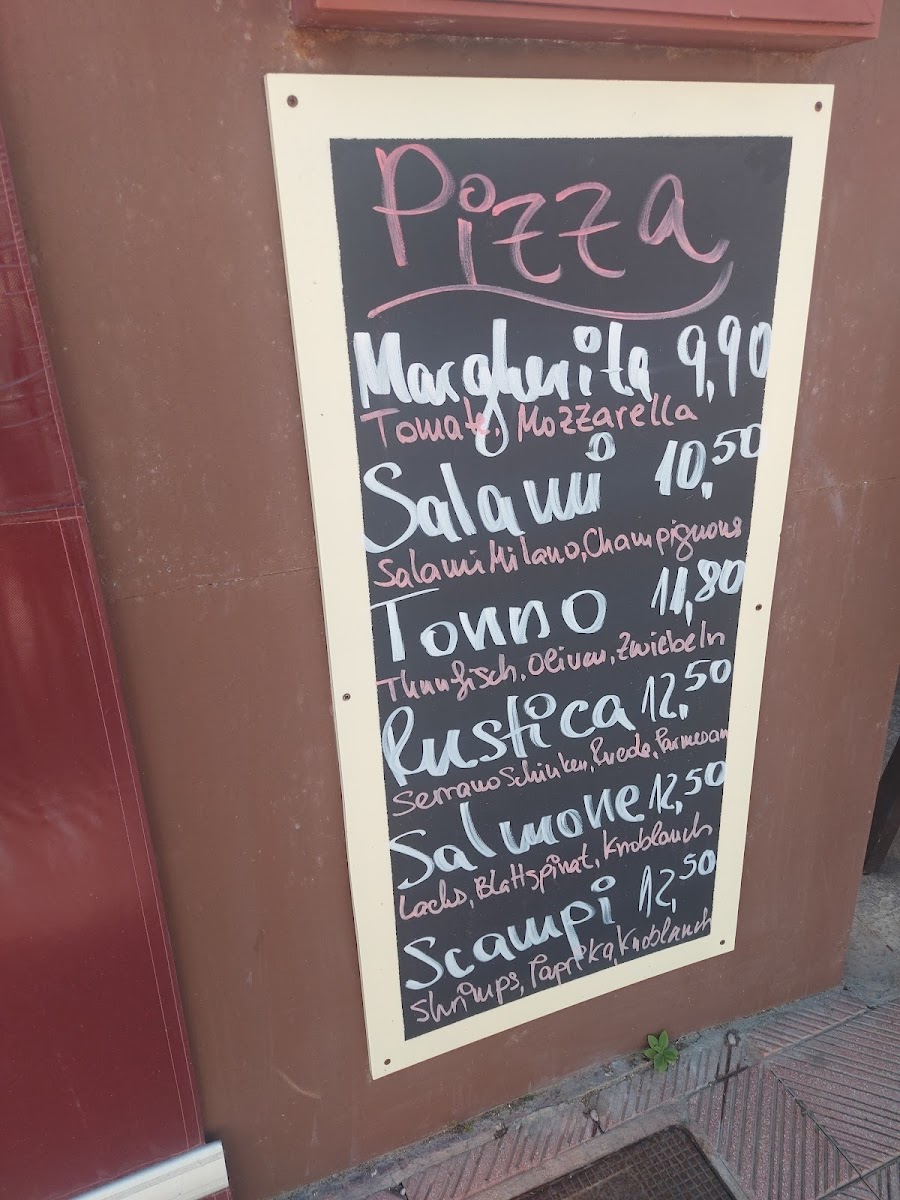 Pizza
Margherita 9,90
Tomate, Mozzarella
Salami 10,50
Salami Milano, Champignons
Tonno 11,80
Thunfisch, Oliven, Zwiebeln
Rustica 12,50
Serrano Schinken, Rucola, Parmesan
Salmone 12,50
Lachs, Blattspinat, Knoblauch
Scampi 12,50
Shrimps, Paprika, Knoblauch